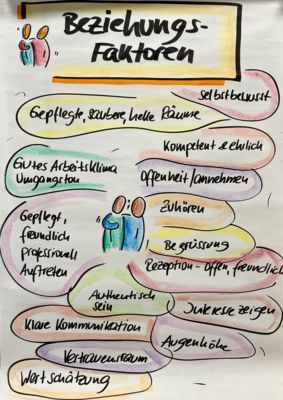 Beziehungs-
Faktoren
Selbstbewusst
Gepflegte, saubere, helle Räume
Kompetent & ehrlich
Gutes Arbeitsklima
Umgangston
Offenheit/annehmen
Zuhören
Gepflegt,
freundlich
Professionell
Auftreten
Begrüssung
Rezeption - offen, freundlich
Authentisch
sein
Interesse zeigen
Klare Kommunikation
Augenhöhe
Vertrauensraum
Wertschätzung